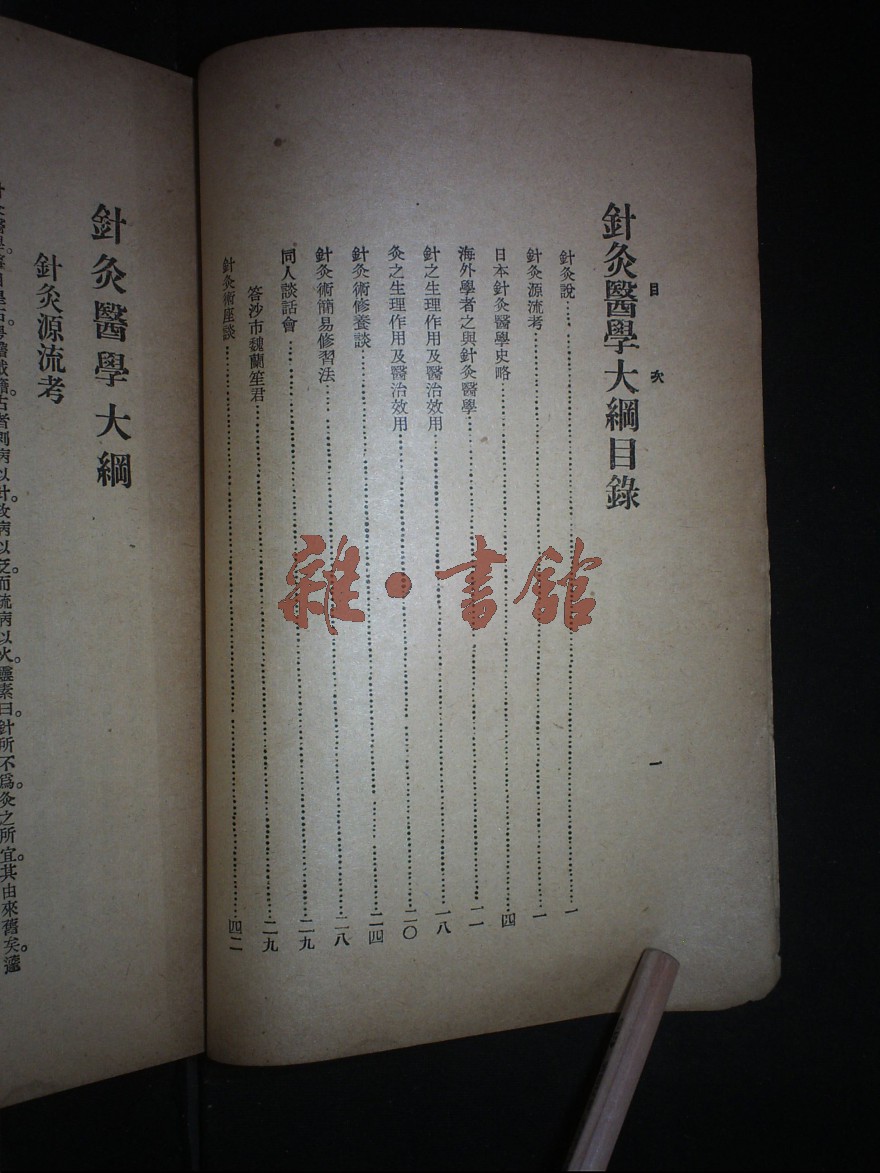 針灸醫學大綱目錄
目次
一
針灸說……一
針灸源流考……一
日本針灸醫學史略……四
海外學者之與針灸醫學……一一
針之生理作用及醫治效用……一八
灸之生理作用及醫治效用……二〇
針灸術修養談……二四
針灸術簡易修習法……二八
同人談話會……二九
答沙市魏蘭笙君……二九
針灸術座談……四二
雜·書館
針灸醫學大綱
針灸源流考
以火。靈素曰。針所不爲。灸之所宜。其由來舊矣。